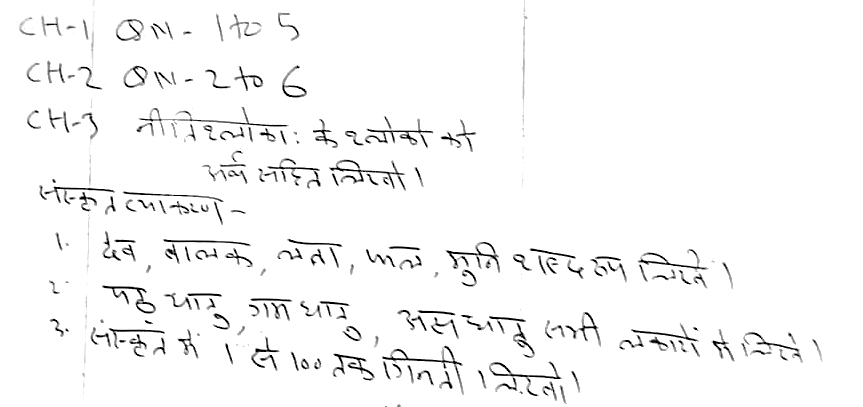 CH-1 QN - 1 to 5
CH-2 QN - 2 to 6
CH-3 नीतिश्लोकाः के श्लोको को
अर्थ सहित लिखो।
संस्कृत व्याकरण -
1. देव, बालक, लता, फल, मुनि शब्द रूप लिखे।
2. पठ धातु, गम धातु, अस धातु सभी लकारों मे लिखे।
3. संस्कृत में 1 से 100 तक गिनती लिखो।